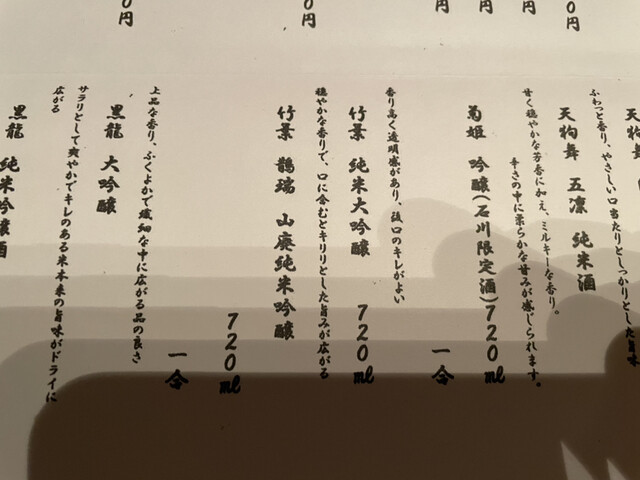 0円
円
円
円
0円
0円
天狗舞
ふわっと香り、やさしい口当たりとしっかりとした旨味
天狗舞 五凛 純米酒
甘く穏やかな芳香に加え、ミルキーな香り。
辛さの中に柔らかな甘みが感じられます。
菊姫 吟醸(石川限定酒)720ml
一合
香り高く透明感があり、後口のキレがよい
竹景 純米大吟醸 720ml
穏やかな香りで、口に含むとキリリとした旨みが広がる
竹景 鵲瑞 山廃純米吟醸
720ml
一合
上品な香り、ふくよかで繊細な中に広がる品の良さ
黒龍 大吟醸
サラリとして爽やかでキレのある米本来の旨味がドライに
広がる
黒龍 純米吟醸